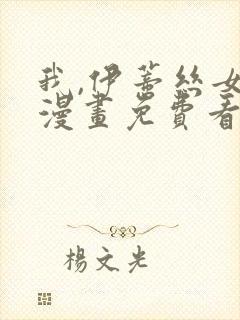 我,伊蒂絲女
漫畫免費看
楊文光